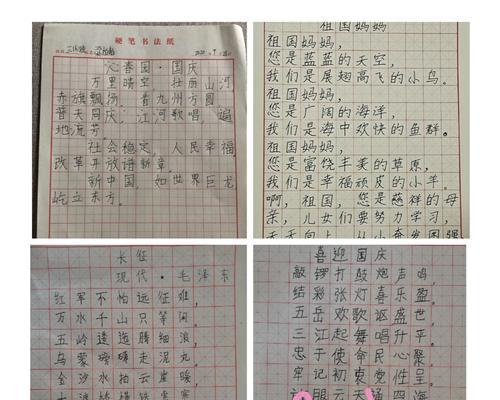 硬笔书法纸
沁春园·国庆
万里晴空，壮丽山河
赤旗飘扬，看九州方圆
普天同庆，江河歌唱，遍
地流芳。
社会稳定，人民幸福
改革开放谱新章
新中国，如世界巨龙
屹立东方。
祖国妈妈
祖国妈妈，
您是蓝蓝的天空，
我们是展翅高飞的小鸟。
祖国妈妈，
您是广阔的海洋，
我们是海中欢快的鱼群。
祖国妈妈，
您是富饶丰美的草原，
我们是幸福顽皮的小羊。
啊，祖国，您是慈祥的母
亲，儿女们要努力学习，
天天向上，从小奋发图强
长征
现代·毛泽东
红军不怕远征难，
万水千山只等闲。
五岭逶迤腾细浪，
乌蒙磅礴走泥丸。
金沙水拍云崖暖，
喜迎国庆
敲锣打鼓炮声鸣，
结彩张灯喜乐盈。
五岳欢歌讴盛世
三江起舞唱升平
忠于使命民心聚
牢记初衷党性呈
眼云天涌四海